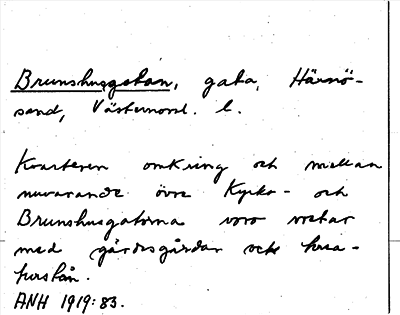 Brunshusgatan, gata, Härnö-
sand, Västernorrl. l.
Kvarteren omkring och mellan
nuvarande övre Kyrko- och
Brunshusgatorna voro
med gärdesgårdar och
ANH 1919:83.